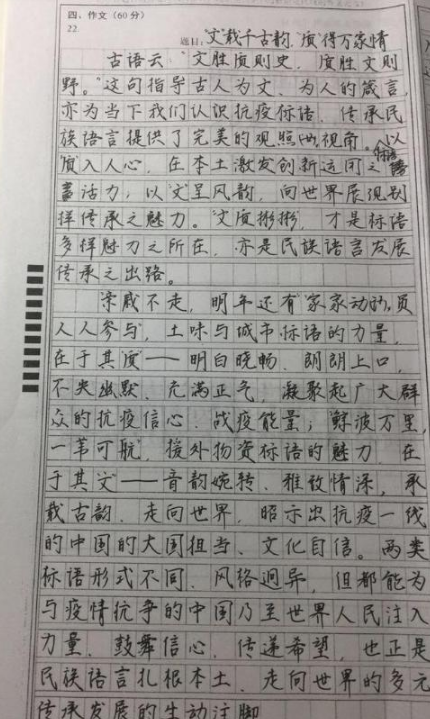 四、作文(60分)
22
题目:“文”载千古韵,“质”得万家情
古语云“文胜质则史,质胜文则
野。”这句指导古人为文、为人的箴言,
亦为当下我们认识抗疫标语、传承民
族语言提供了完美的观照视角。以
“质”入人心,在本土激发创新运用之标语
活力;以“文”呈风韵,向世界展现别
样传承之魅力。“文质彬彬”,才是标语
多样魅力之所在,亦是民族语言发展
传承之出路。
“亲戚不走,明年还有”“家家动员,
人人参与”,土味与城市标语的力量,
在于其“质”——明白晓畅、朗朗上口,
不失幽默、充满正气,凝聚起广大群
众的抗疫信心、战疫能量;“鲸波万里,
一苇可航”,援外物资标语的魅力,在
于其“文”——音韵婉转、雅致情深,承
载古韵、走向世界,昭示出抗疫一线
的中国的大国担当、文化自信。两类
标语形式不同、风格迥异,但都能为
与疫情抗争的中国乃至世界人民注入
力量、鼓舞信心、传递希望,也正是
民族语言扎根本土、走向世界的多元
传承发展的生动注脚